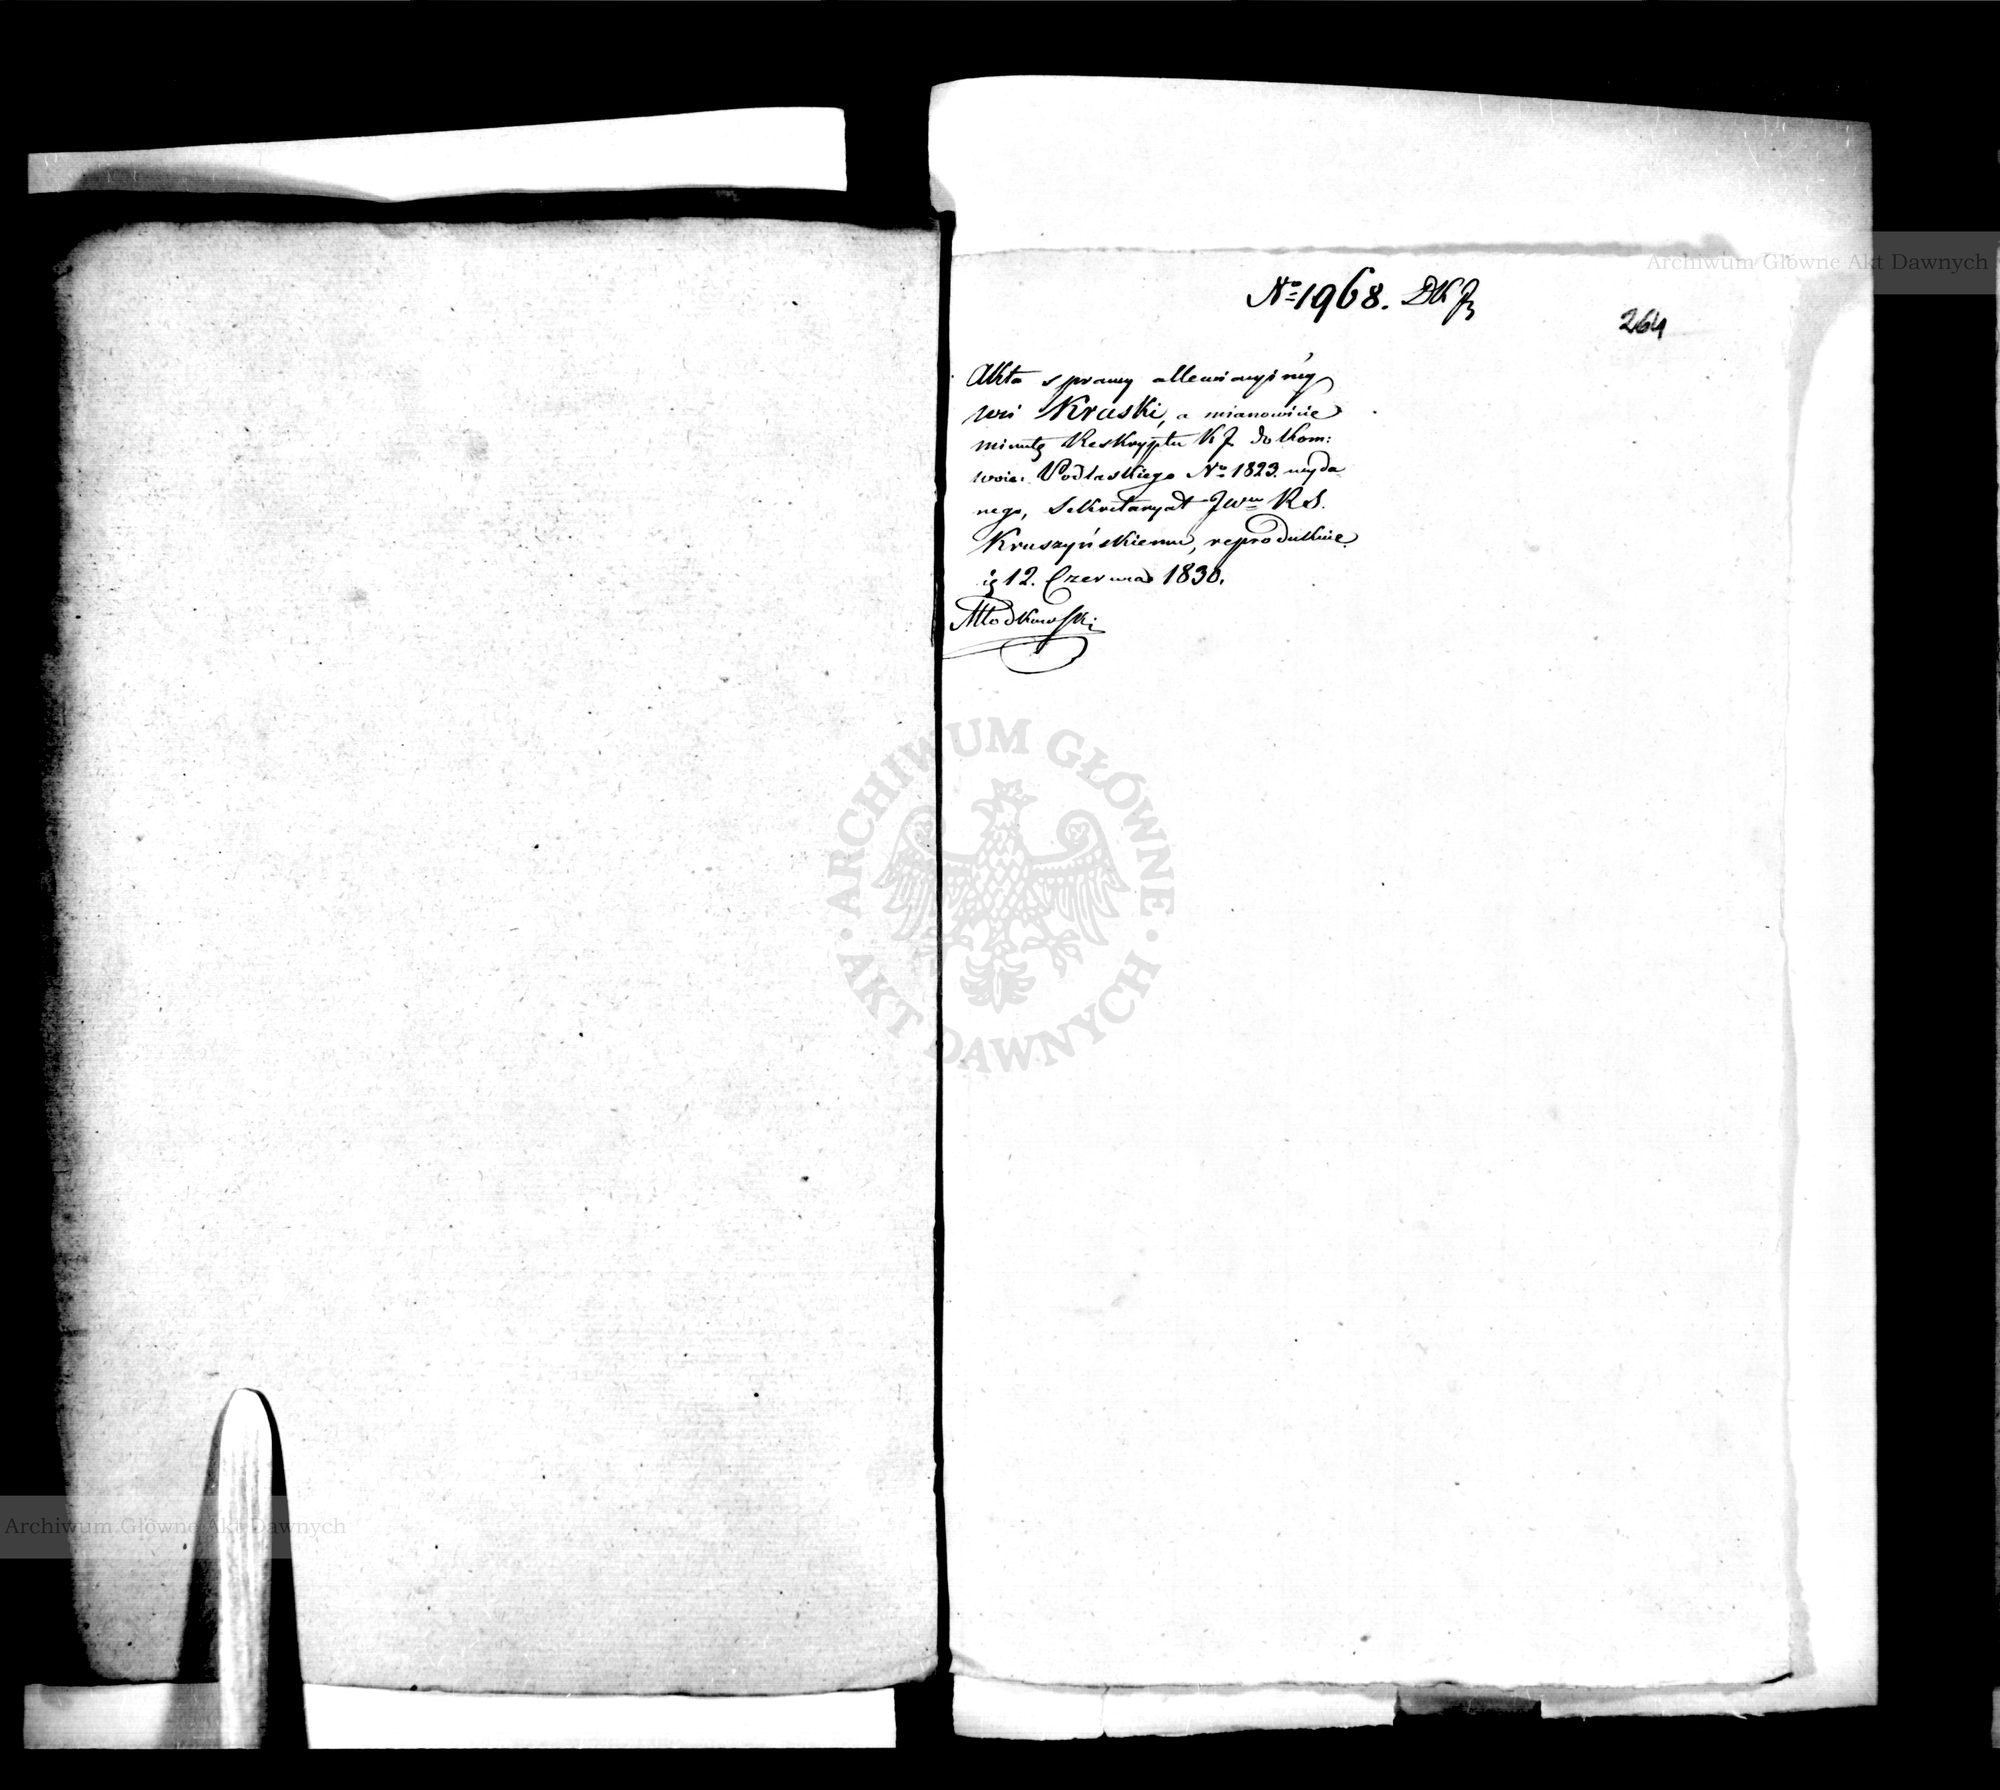 Archiwum Główne Akt Dawnych
No 1968. DKJ
264
Akta sprawy allewiacyjney
wsi Kruski, a mianowicie
minutę Reskryptu KJ do Kom:
woie: Podlaskiego No 1823. wyda
nego, Sekretaryat JWmu RS.
Kruszyńskiemu, reprodukuie.
12. Czerwca 1830.
Młodkowski
ARCHIWUM GŁÓWNE
AKT DAWNYCH
Archiwum Główne Akt Dawnych